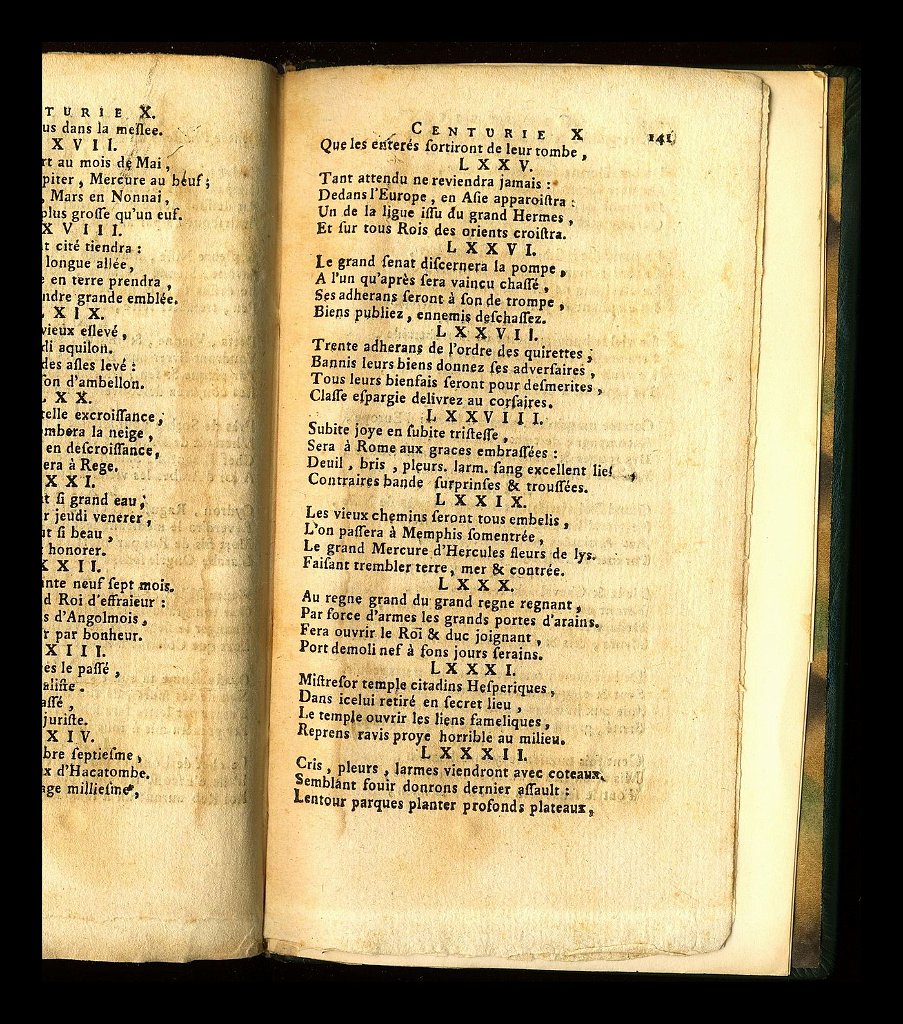 TURIE X.
us dans la meslee.
XVII.
rt au mois de Mai,
piter, Mercure au beuf;
, Mars en Nonnai,
plus grosse qu'un euf.
XVIII.
t cité tiendra :
longue allée,
e en terre prendra,
ndre grande emblée.
XIX.
vieux eslevé,
di aquilon.
des asles levé :
son d'ambellon.
XX.
relle excroissance,
mbera la neige,
en descroissance,
era à Rege.
XXI.
t si grand eau;
r jeudi venerer,
ut si beau,
honorer.
XXII.
inte neuf sept mois.
d Roi d'effraieur :
s d'Angolmois,
r par bonheur.
XIII.
es le passé,
aliste.
assé,
juriste.
XIV.
bre septiesme,
x d'Hacatombe.
age milliesme,
CENTURIE X 141
Que les enterés sortiront de leur tombe,
LXXV.
Tant attendu ne reviendra jamais :
Dedans l'Europe, en Asie apparoistra :
Un de la ligue issu du grand Hermes,
Et sur tous Rois des orients croistra.
LXXVI.
Le grand senat discernera la pompe,
A l'un qu'après sera vaincu chassé,
Ses adherans seront à son de trompe,
Biens publiez, ennemis deschassez.
LXXVII.
Trente adherans de l'ordre des quirettes;
Bannis leurs biens donnez ses adversaires,
Tous leurs bienfais seront pour desmerites,
Classe espargie delivrez au corsaires.
LXXVIII.
Subite joye en subite tristesse,
Sera à Rome aux graces embrassées :
Deuil, bris, pleurs. larm. sang excellent lies
Contraires bande surprinses & troussées.
LXXIX.
Les vieux chemins seront tous embelis,
L'on passera à Memphis somentrée,
Le grand Mercure d'Hercules fleurs de lys.
Faisant trembler terre, mer & contrée.
LXXX.
Au regne grand du grand regne regnant,
Par force d'armes les grands portes d'arains.
Fera ouvrir le Roi & duc joignant,
Port demoli nef à fons jours serains.
LXXXI.
Mistresor temple citadins Hesperiques,
Dans icelui retiré en secret lieu,
Le temple ouvrir les liens fameliques,
Reprens ravis proye horrible au milieu.
LXXXII.
Cris, pleurs, larmes viendront avec coteaux,
Semblant fouir donrons dernier assault :
Lentour parques planter profonds plateaux,